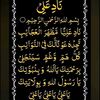 نَادِ عَلِي
بِسْمِ اللهِ الرَّحْمٰنِ الرَّحِيْمِ
نَادِ عَلِيًّا مَّظْهَرَ الْعَجَائِبِ
تَجِدْهُ عَوْنًا لَّكَ فِي النَّوَائِبِ
كُلُّ هَمٍّ وَّ غَمٍّ سَيَنْجَلِيْ
يَا اللهُ وَ بِنُبُوَّتِكَ
يَا مُحَمَّدُ وَ بِوَلَايَتِكَ
يَا عَلِيُّ يَا عَلِيُّ يَا عَلِيُّ